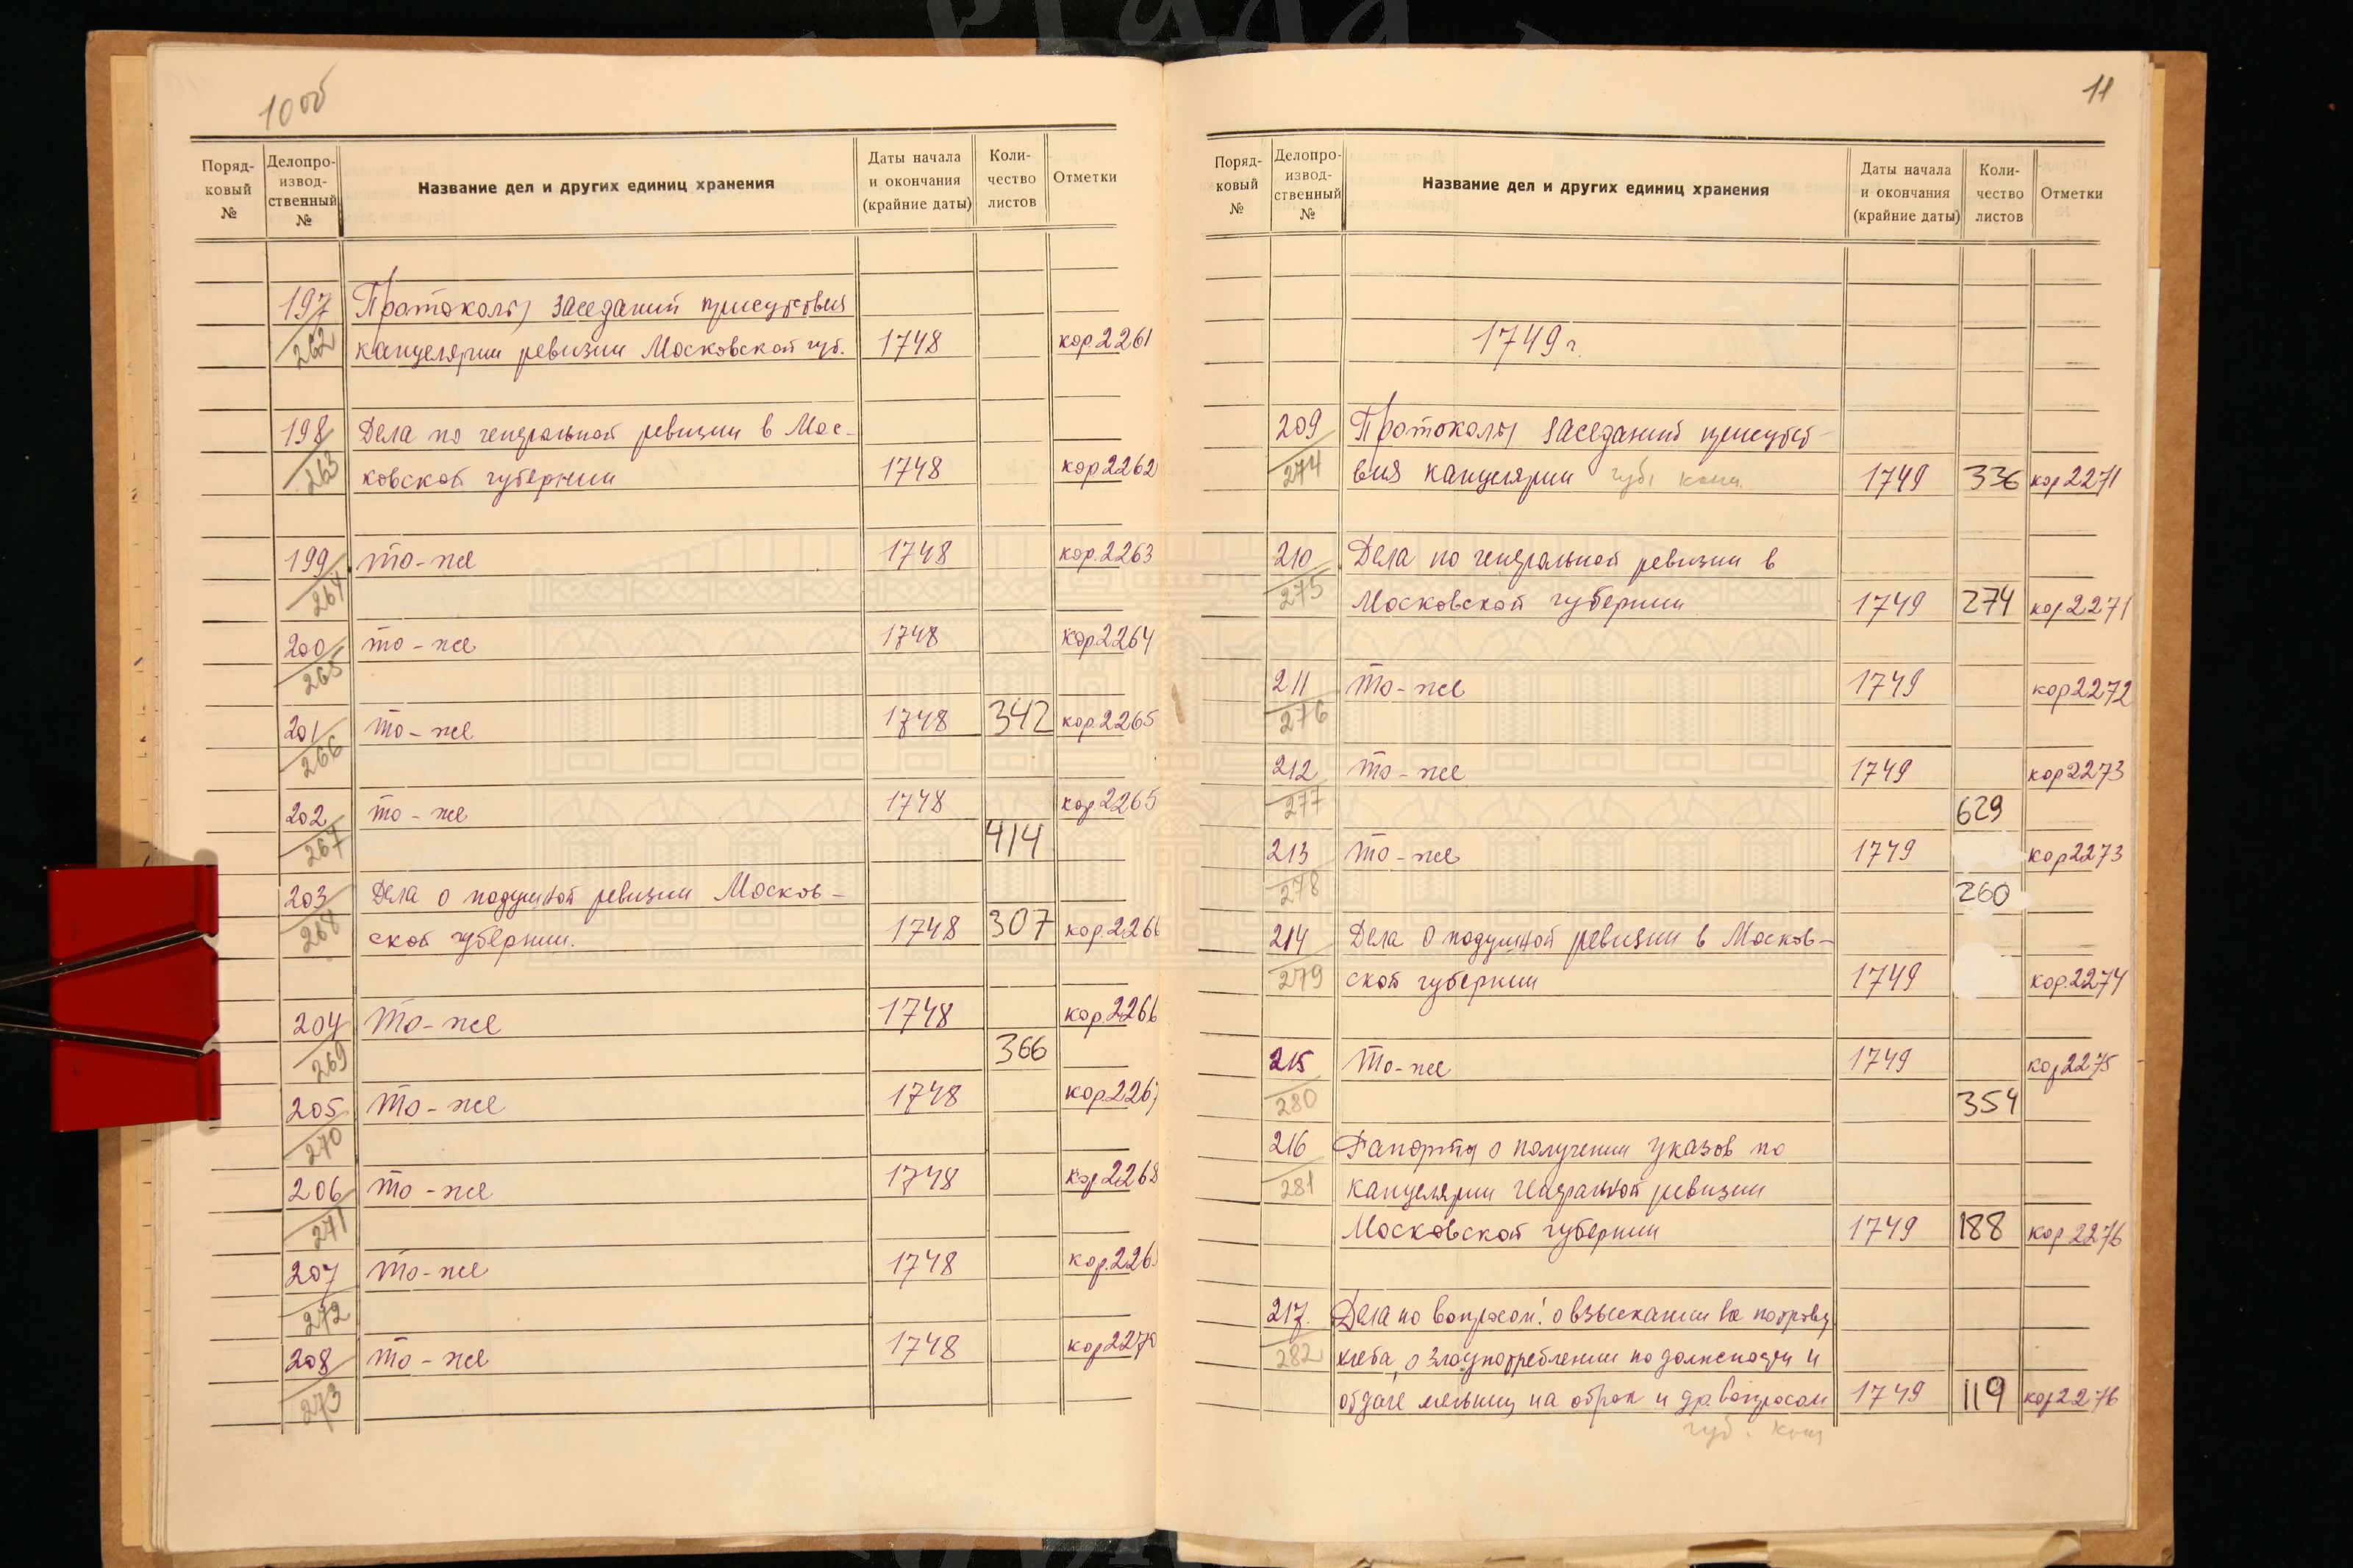 10 об
Поряд-
ковый
№
Делопро-
извод-
ственный
№
Название дел и других единиц хранения
Даты начала
и окончания
(крайние даты)
Коли-
чество
листов
Отметки
197 Протоколы заседаний присутствия
262 канцелярии ревизии Московской губ. 1748 кор. 2261
198 Дела по генеральной ревизии в Мос-
263 ковской губернии 1748 кор 2262
199 то-же 1748 кор. 2263
264
200 то-же 1748 кор 2264
265
201 то-же 1748 342 кор. 2265
266
202 то-же 1748 кор 2265
267 414
203 Дела о подушной ревизии Москов-
268 ской губернии. 1748 307 кор. 2266
204 то-же 1748 кор. 2266
269 366
205 то-же 1748 кор. 2267
270
206 то-же 1748 кор 2268
271
207 то-же 1748 кор. 226
272
208 то-же 1748 кор 2270
273
11
Поряд-
ковый
№
Делопро-
извод-
ственный
№
Название дел и других единиц хранения
Даты начала
и окончания
(крайние даты)
Коли-
чество
листов
Отметки
1749 г.
209 Протоколы заседаний присутст-
274 вия канцелярии губ. 1749 336 кор 2271
210 Дела по генеральной ревизии в
275 Московской губернии 1749 274 кор 2271
211 то-же 1749 кор 2272
276
212 то-же 1749 кор 2273
277 629
213 то-же 1749 кор 2273
278 260
214 Дела о подушной ревизии в Москов-
279 ской губернии 1749 кор. 2274
215 то-же 1749 кор 2275
280 354
216 Рапорты о получении указов по
281 канцелярии генеральной ревизии
Московской губернии 1749 188 кор 2276
217. Дела по вопросам: о взыскании за потраву
282 хлеба, о злоупотреблении по должности и
отдаче мельниц на оброк и др. вопросам 1749 119 кор 2276
губ.